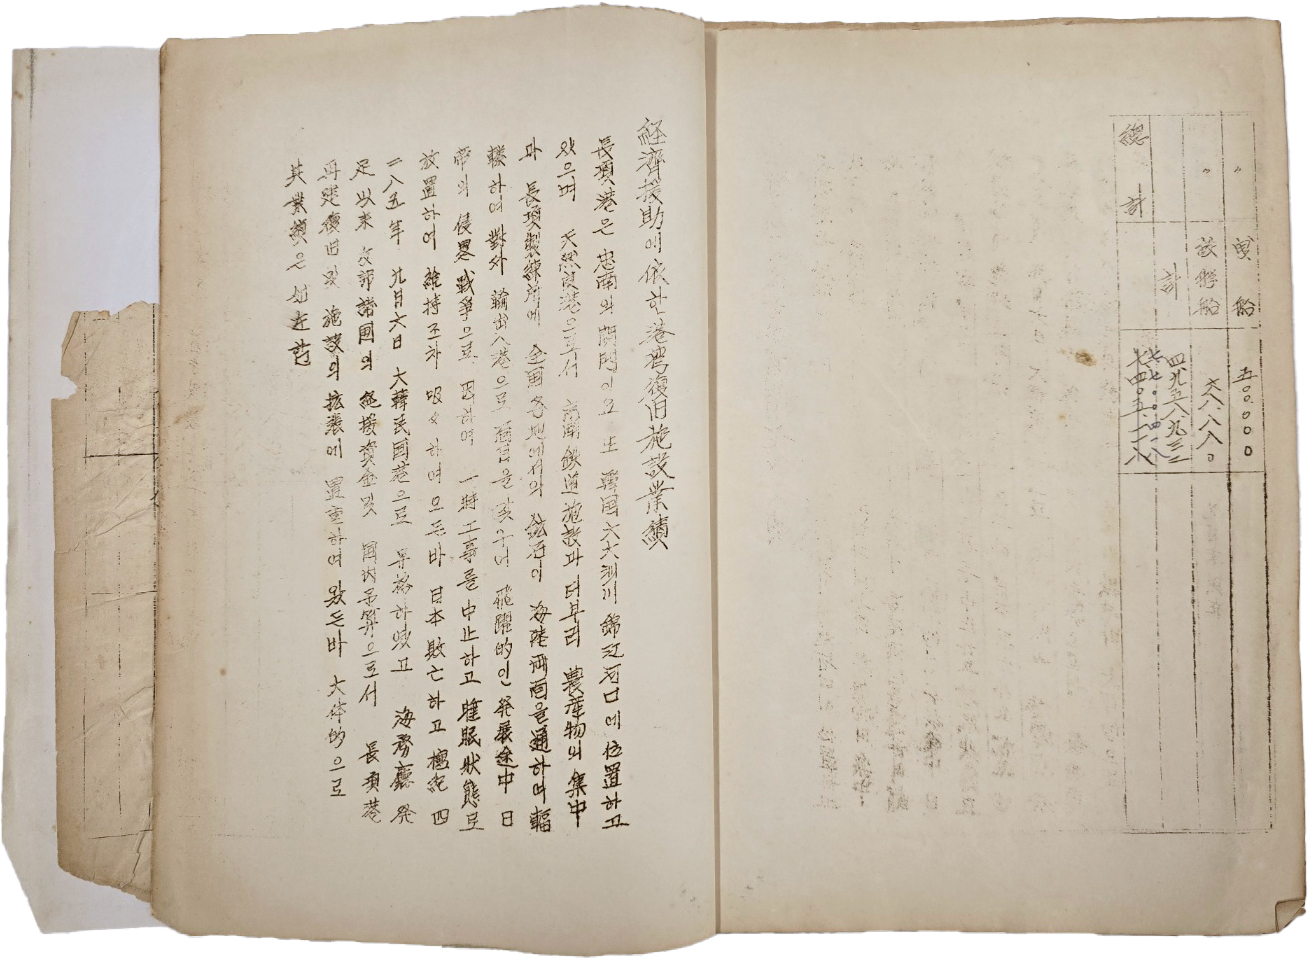 〃 曳船 五〇.〇〇〇
〃 六八八八〇
計 四九五八九三二
総計
経済援助에 依한 港湾復旧施設業績
長項港은 忠南의 関門이요 또 韓国六大河川 錦江河口에 位置하고
있으며 天然良港으로서 京南鉄道施設과 더부러 農産物의 集中
과 長項製錬所에 全国各地에서의 鉱石이 海陸両面을通하여 輻
輳하여 對外 輸出入港으로 飛躍的인 発展途中 日
帝의 侵畧戰爭으로 因하여 一時工事를 中止하고 睡眠狀態로
放置하여 維持조차 하여오든바 日本敗亡하고 檀紀 四
二八五年 九月六日 大韓民国港으로 昇格하였고 海務廳 発
足以來 友邦諸国의 經援資金및 国内予算으로서 長項港
再建復旧및 施設의 拡張에 置重하여 왔든바 大体的으로
其業績은 如左함